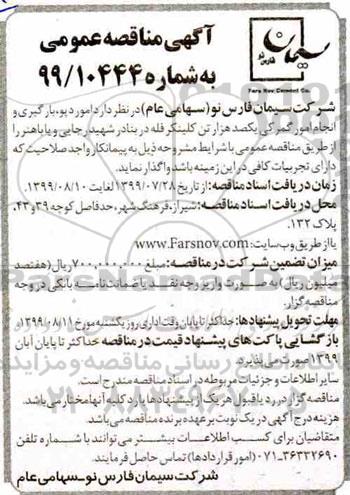 آگهی مناقصه عمومی
به شماره ۹۹/۱۰۴۴۴
سیمان
فارس نو
Fars Nov Cement Co.
شرکت سیمان فارس نو (سهامی عام) در نظر دارد امور دپو، بارگیری و
انجام امور گمرکی یکصد هزار تن کلینکر فله در بنادر شهید رجایی و یا باهنر را
از طریق مناقصه عمومی با شرایط مشروحه ذیل به پیمانکار واجد صلاحیت که
دارای تجربیات کافی در این زمینه باشد واگذار نماید.
زمان دریافت اسناد مناقصه: از تاریخ ۱۳۹۹/۰۷/۲۸ لغایت ۱۳۹۹/۰۸/۱۰.
محل دریافت اسناد مناقصه: شیراز، فرهنگ شهر، حدفاصل کوچه ۳۹ و ۴۳،
پلاک ۱۳۲.
یا از طریق وب سایت: www.Farsnov.com
میزان تضمین شرکت در مناقصه: مبلغ ۷۰۰,۰۰۰,۰۰۰ ریال (هفتصد
میلیون ریال) به صورت واریز وجه نقد یا ضمانت نامه بانکی در وجه
مناقصه گزار.
مهلت تحویل پیشنهادها: حداکثر تا پایان وقت اداری روز یکشنبه مورخ ۱۳۹۹/۰۸/۱۱ و
بازگشایی پاکت های پیشنهاد قیمت در مناقصه حداکثر تا پایان آبان
۱۳۹۹ صورت می پذیرد.
سایر اطلاعات و جزئیات مربوطه در اسناد مناقصه مندرج است.
مناقصه گزار در رد یا قبول هر یک از پیشنهادها یا رد کلیه آنها مختار می باشد.
هزینه درج آگهی در یک نوبت بر عهده برنده مناقصه می باشد.
متقاضیان برای کسب اطلاعات بیشتر می توانند با شماره تلفن
۰۷۱-۳۶۳۳۲۶۹۰ (امور قراردادها) تماس حاصل فرمایند.
شرکت سیمان فارس نو-سهامی عام